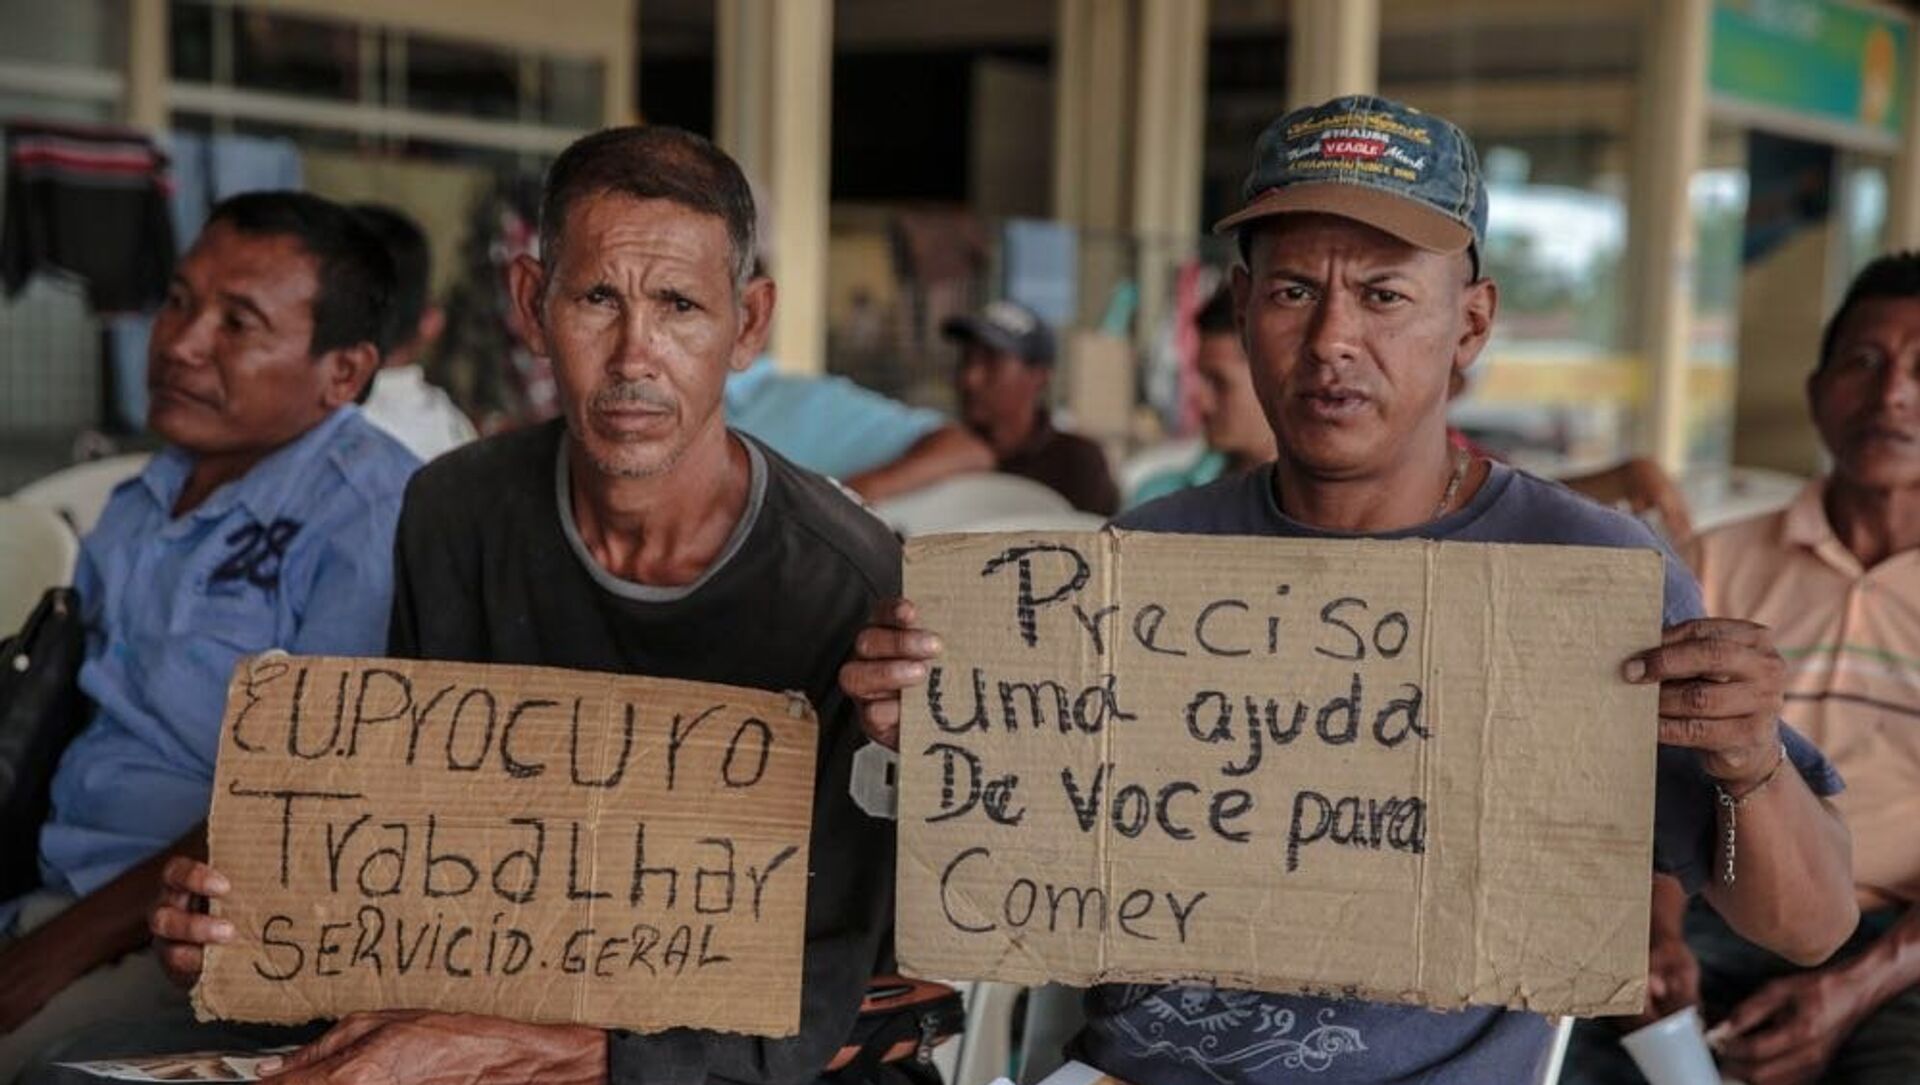 EU.Procuro
Trabalhar
SERVICIO.GERAL
Preciso
uma ajuda
De voce para
Comer
STRAUSS
VEAGLE
28
39